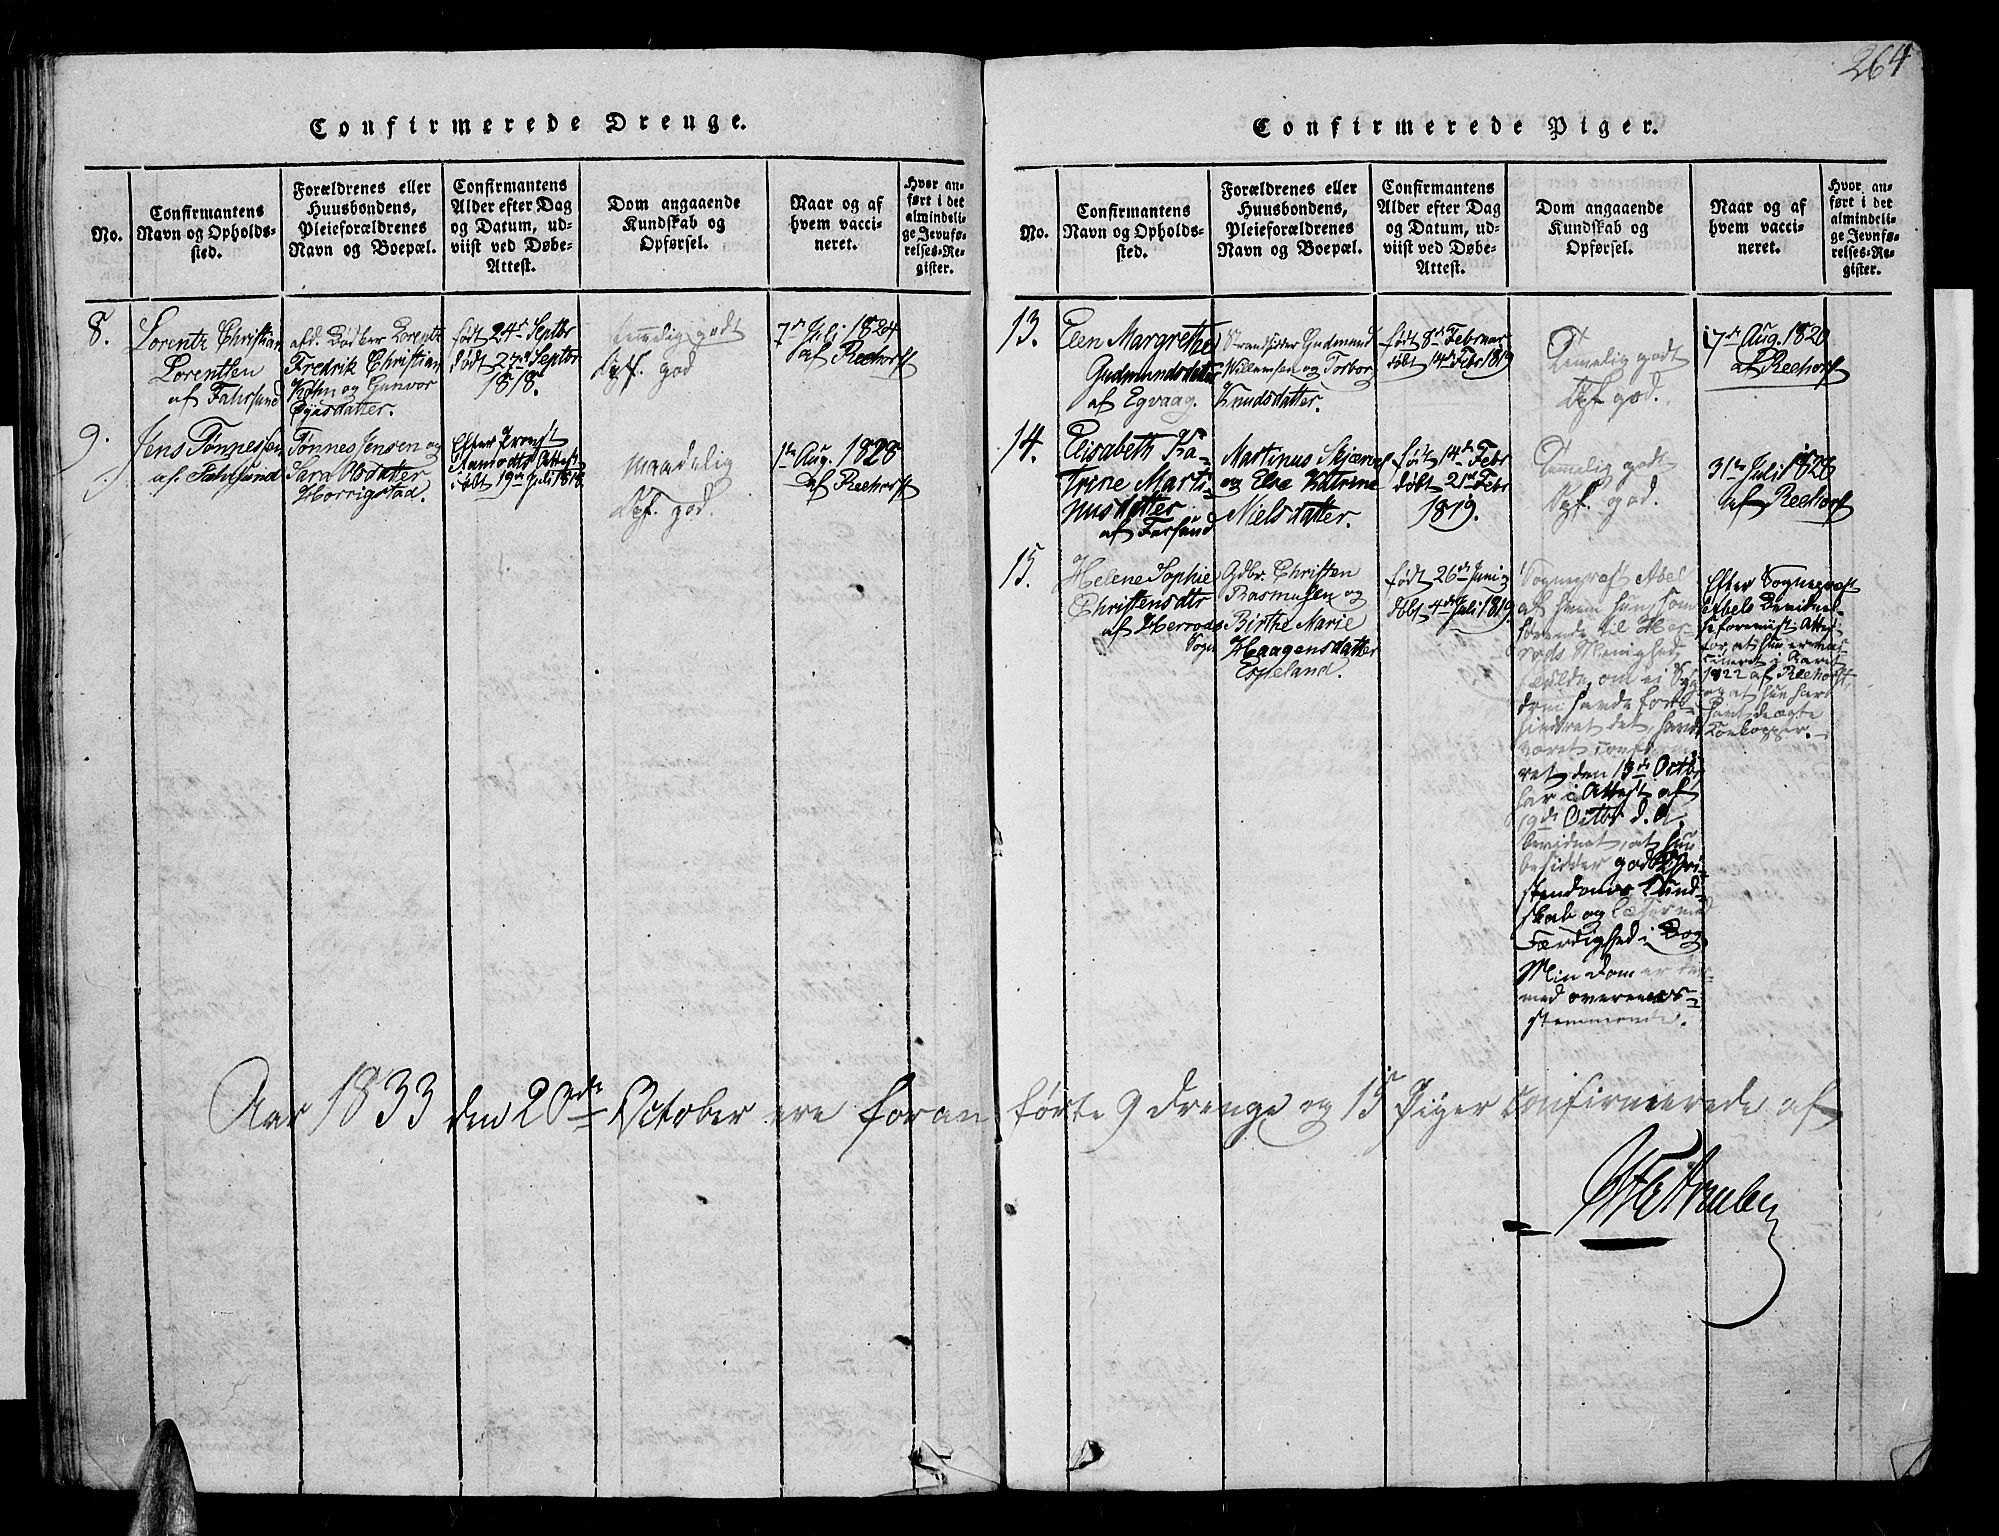 264
Confirmerede Drenge.
No.
Confirmantens
Navn og Opholds-
sted.
Forældrenes eller
Huusbondens,
Pleieforældrenes
Navn og Boepæl.
Confirmantens
Alder efter Dag
og Datum, ud-
viist ved Døbe-
Attest.
Dom angaaende
Kundskab og
Opførsel.
Naar og af
hvem vacci-
neret.
Hvor an-
ført i det
almindeli-
ge Jevnfø-
relses-Re-
gister.
8.
Lorentz Christian
Lorentsen
af Fahrsund
afd. Bødker Lorentz
Fredrik Christian
Køhn og Gunvor
født 24de Septbr
døbt 27de Septbr
1818.
temmelig godt
Opf. god
7de Juli 1824
af Reehorst
9.
Jens Tønnessen
af Fahrsund
Tønnes Jensen og
Sara
Efter Provst
Attest
døbt 19de Juli 1818.
maadelig
Opf. god.
1ste Aug. 1828
af Reehorst
Confirmerede Piger.
No.
Confirmantens
Navn og Opholds-
sted.
Forældrenes eller
Huusbondens,
Pleieforældrenes
Navn og Boepæl.
Confirmantens
Alder efter Dag
og Datum, ud-
viist ved Døbe-
Attest.
Dom angaaende
Kundskab og
Opførsel.
Naar og af
hvem vacci-
neret.
Hvor an-
ført i det
almindeli-
ge Jevnfø-
relses-Re-
gister.
13.
Elen Margrethe
Gudmundsdatter
af Egvaag.
Strandsidder Gudmund
Willumsen og Torbor
Knudsdatter.
født 8de Februar
døbt 14de Febr 1819
Temelig godt
Opf. god.
7de Aug. 1820
af Reehorst
14.
Elisabeth Ka-
trine Marti-
nusdatter
af Farsund
Martinus
og Else Katrine
Nielsdatter.
født 14de Febr
døbt 21de Febr
1819.
Temelig godt
Opf. god.
31te Juli 1828
af Reehorst
15.
Helene Sophie
Christensdtr
af Herreds
Sogn
Gdbr. Christen
Rasmussen og
Birthe Marie
Haagensdatter
Espeland.
født 26de Juni
døbt 4de Juli 1819.
Sognepræst Abel
af hvem hun, som
hørende til Her-
reds Menighed,
skulde, om ei Syg-
dom havde for-
hindret det, have
været confirme-
ret den 13de Octb,
har i Attest af
19de Octbr d. A.
bevidnet, at hun
besidder god Chri-
stendoms Kund-
skab og læser med
Færdighed i Bog
Min Dom er der-
med overeens-
stemmende.
Efter Sognepræst
Abels
Attest
for, at hun er vac-
cineret i Aaret
1822 af Reehorst,
og at hun har
havt de ægte
Koekopper.
Aar 1833 den 20de October ere foran førte 9 Drenge og 15 Piger confirmerede af